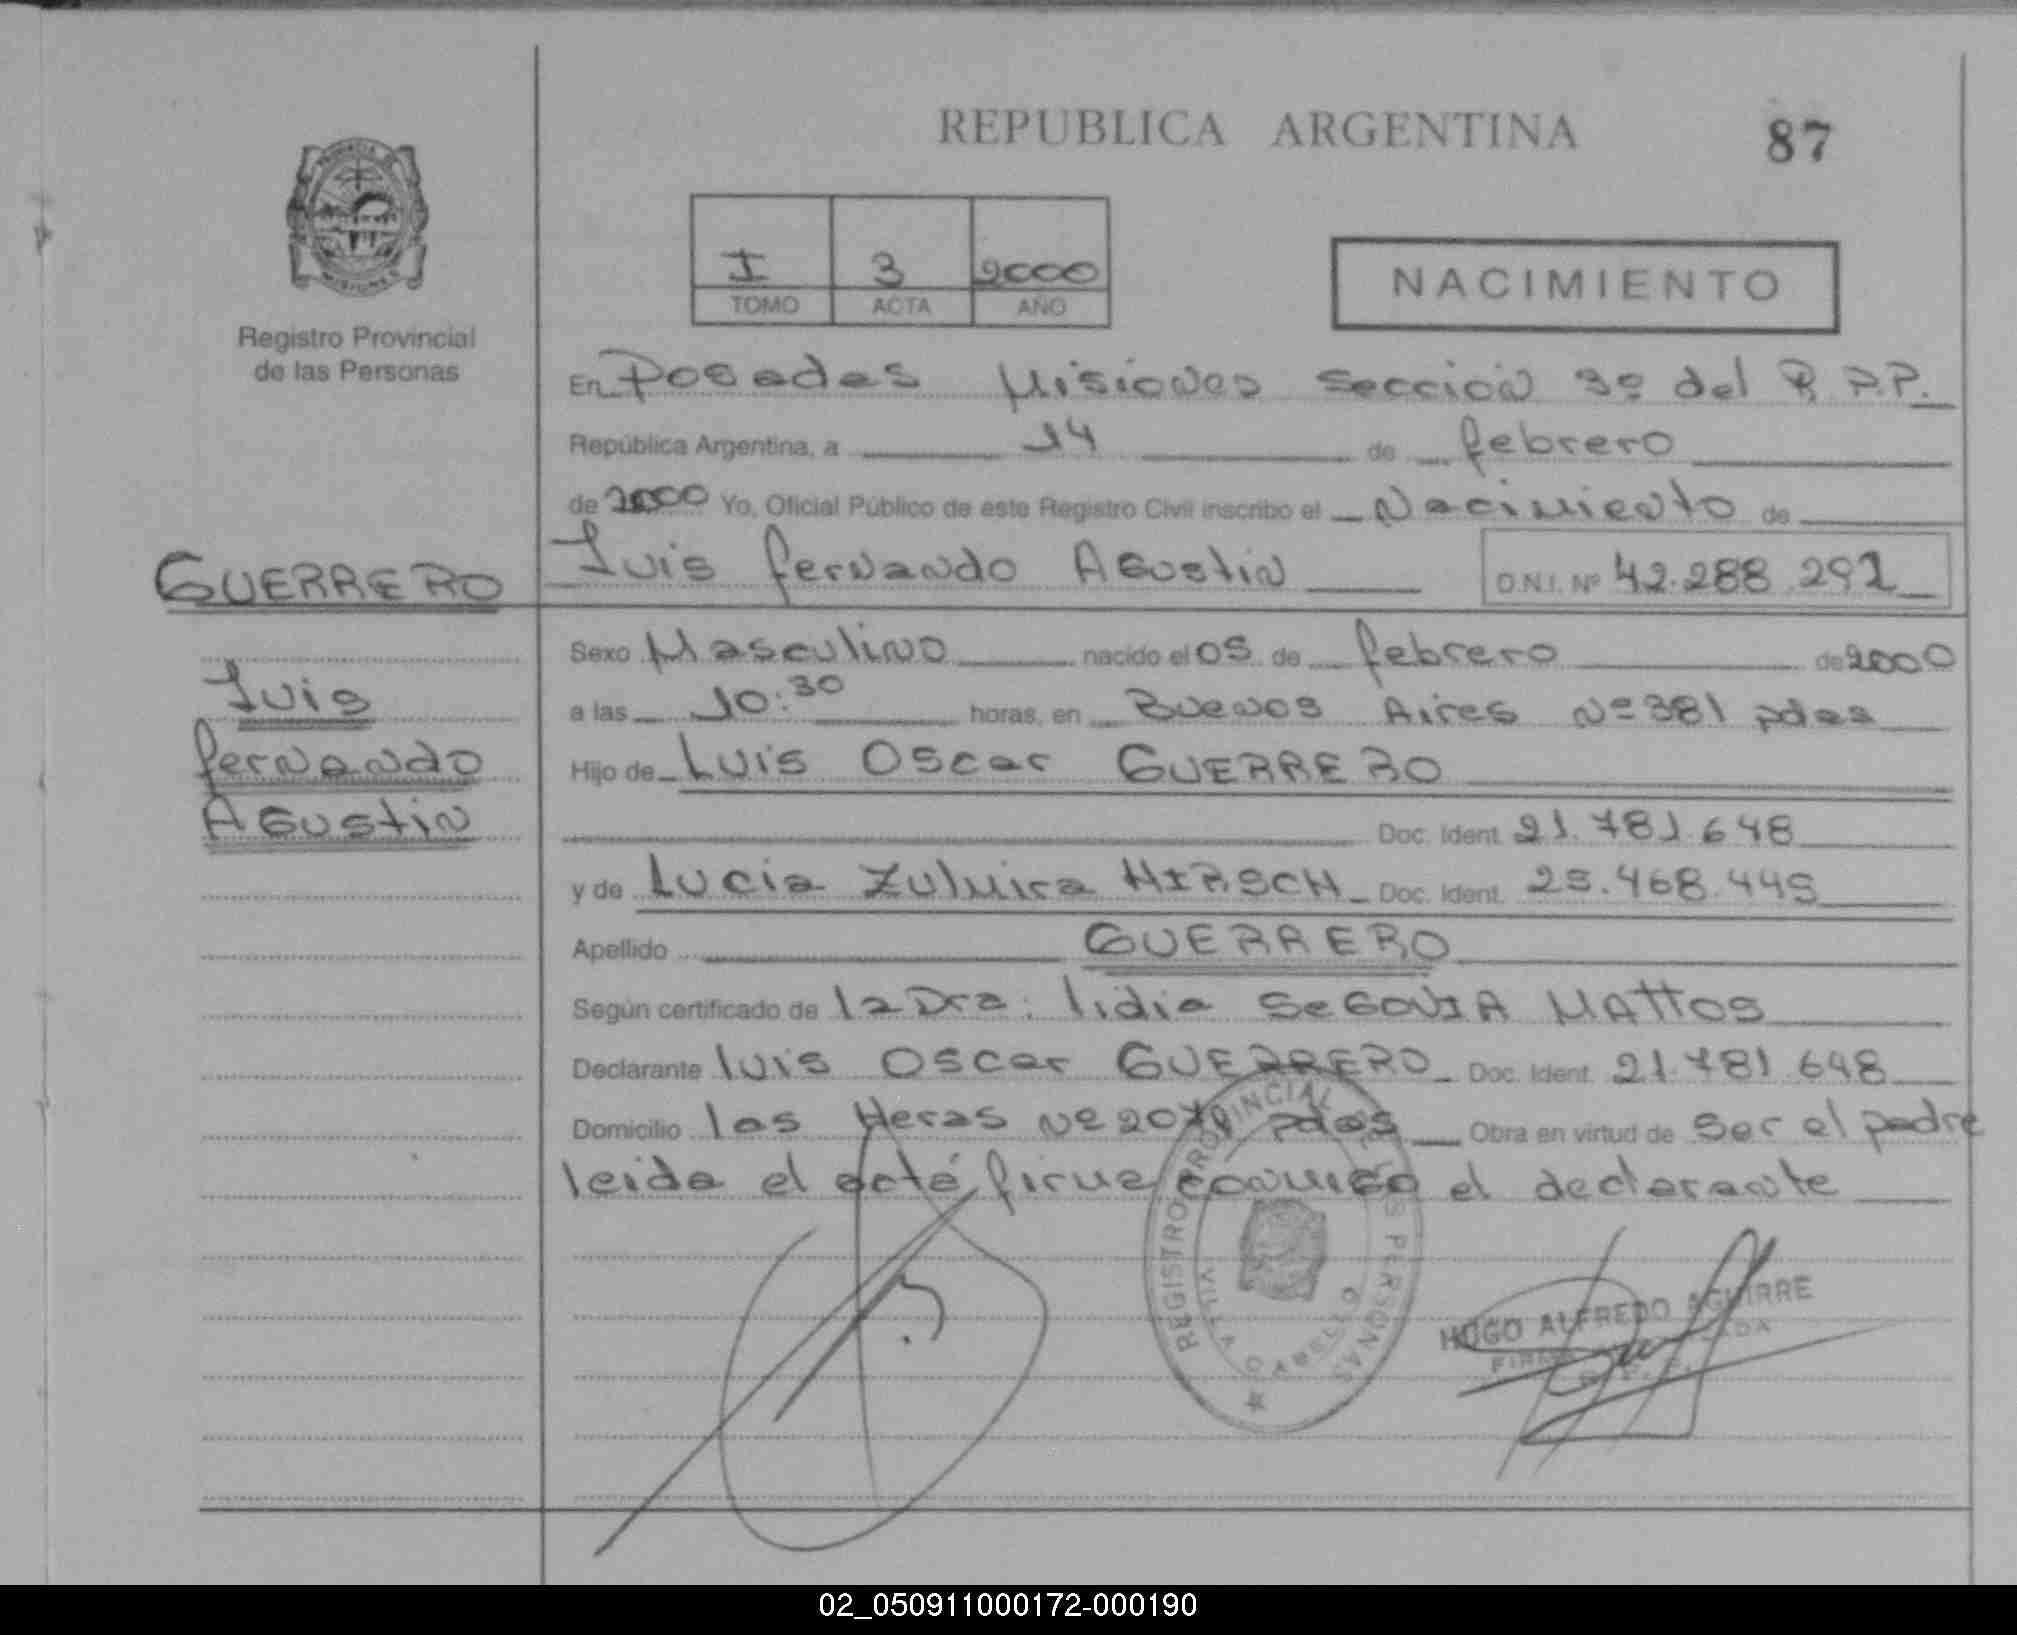 REPUBLICA ARGENTINA
87
I 3 2000
TOMO ACTA AÑO
NACIMIENTO
Registro Provincial
de las Personas
En Posadas Misiones Sección 3º del R.P.P.
República Argentina, a 14 de febrero
de 2000 Yo, Oficial Público de este Registro Civil inscribo el Nacimiento de
GUERRERO
Luis fernando AGustin D.N.I. Nº 42.288.292
Sexo Masculino nacido el 05 de febrero de 2000
Luis
a las 10:30 horas, en Buenos Aires Nº 381 pdas
fernando
Hijo de Luis Oscar GUERRERO
AGustin
Doc. Ident. 21.781.648
y de Lucia Zulmira HIRSCH Doc. Ident. 25.468.445
Apellido GUERRERO
Según certificado de la Dra: lidia SeGOVIA MATTOS
Declarante luis Oscar GUERRERO Doc. Ident. 21.781.648
Domicilio las Heras Nº pdas Obra en virtud de Ser el padre
leida el acta firma conmigo el declarante
REGISTRO PROVINCIAL DE LAS PERSONAS
VILLA CABELLO
HUGO ALFREDO AGUIRRE
02_050911000172-000190